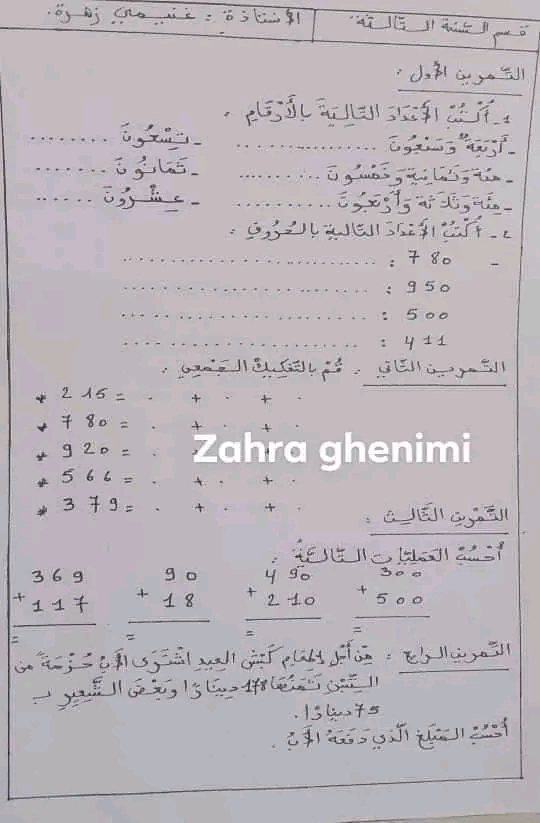 قسم السنة الثالثة.
الأستاذة : غنيمي زهرة.
التمرين الأول :
1- أُكْتُبْ الأَعْدَادَ التَّالِيَةَ بِالأَرْقَامِ :
- أَرْبَعَةٌ وَسَبْعُونَ ............... - تِسْعُونَ ........
- مِئَة وَثَمَانِيَة وَخَمْسُونَ ......... - ثَمَانُونَ .......
- مِئَة وَثَلَاثَة وَأَرْبَعُونَ .......... - عِشْرُونَ ......
2- أُكْتُبْ الأَعْدَادَ التَّالِيَةَ بِالحُرُوفِ :
- 780 : ..............................
950 : ..............................
500 : ..............................
411 : ..............................
التمرين الثاني : قُمْ بِالتَّفْكِيكِ الجَمْعِي :
* 215 = . + . + .
* 780 = . + . + .
* 920 = . + . + .
Zahra ghenimi
* 566 = . + . + .
* 379 = . + . + .
التَّمْرِين الثَّالِث :
أُحْسُبْ العَمَلِيَّات التَّالِيَةُ :
369 90 490 300
+ 117 + 18 + 210 + 500
= = =
التَّمْرِين الرابع : مِنْ أَجْلِ إطْعَام كَبْش العِيدِ اشْتَرَى الأَبُ حُزْمَةً مِن
التِّبْنِ ثَمَنُهَا 178 دِينَارًا وَبَعْضَ الشَّعِيرِ بِ
75 دينارًا.
أُحْسُبْ المَبْلَغ الَّذِي دَفَعَهُ الأَبُ .